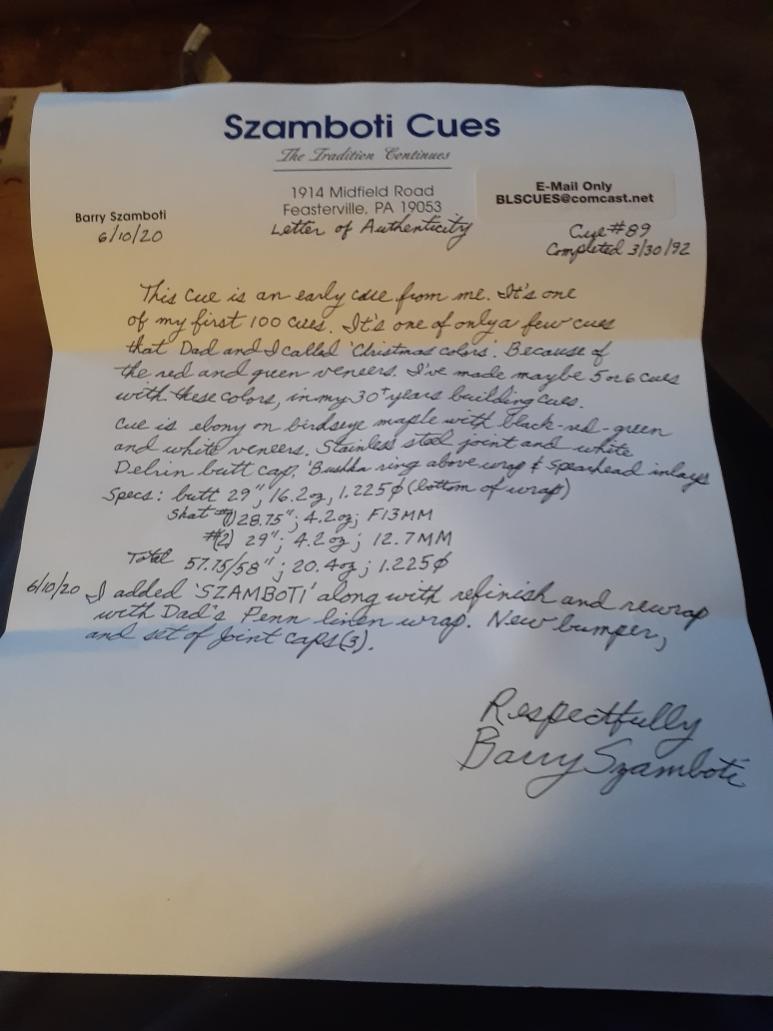 Szamboti Cues
The Tradition Continues
1914 Midfield Road
Feasterville, PA 19053
E-Mail Only
BLSCUES@comcast.net
Barry Szamboti
6/10/20
Letter of Authenticity
Cue #89
Completed 3/30/92
This cue is an early cue from me. It's one
of my first 100 cues. It's one of only a few cues
that Dad and I called 'Christmas colors'. Because of
the red and green veneers. I've made maybe 5 or 6 cues
with these colors, in my 30+ years building cues.
Cue is ebony on birdseye maple with black-red-green
and white veneers. Stainless steel joint and white
Delrin butt cap. 'Bushka ring above wrap & Spearhead inlays
Specs: butt 29"; 16.2oz, 1.225⌀ (bottom of wrap)
Shaft #1) 28.75"; 4.2oz; F13MM
#2) 29"; 4.2oz; 12.7MM
Total 57.75/58"; 20.4oz; 1.225⌀
6/10/20 I added 'SZAMBOTI' along with refinish and rewrap
with Dad's Penn linen wrap. New bumper,
and set of joint caps (3).
Respectfully
Barry Szamboti